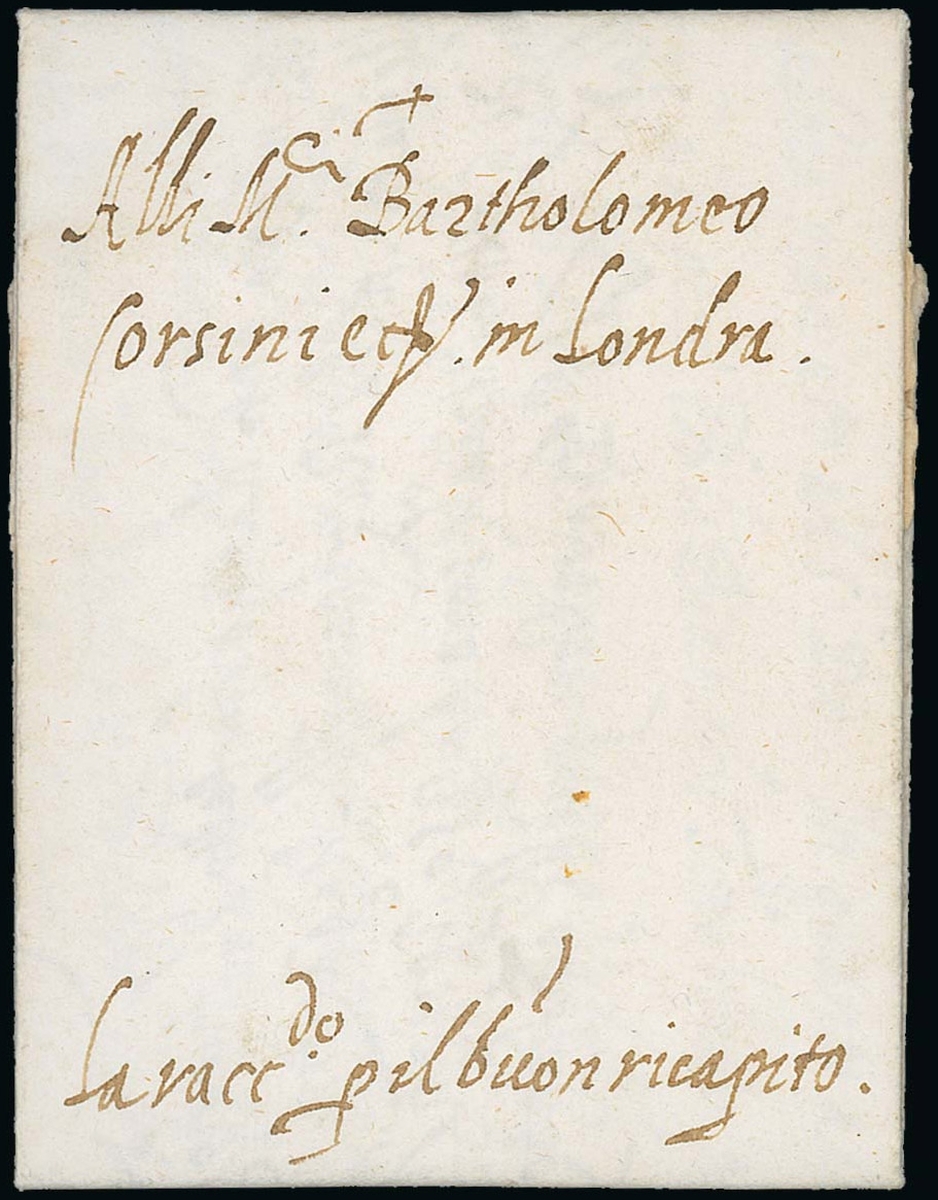 +
Alli M.ci Bartholomeo
Corsini e cp. in Londra.
La racc.do p il buon ricapito.